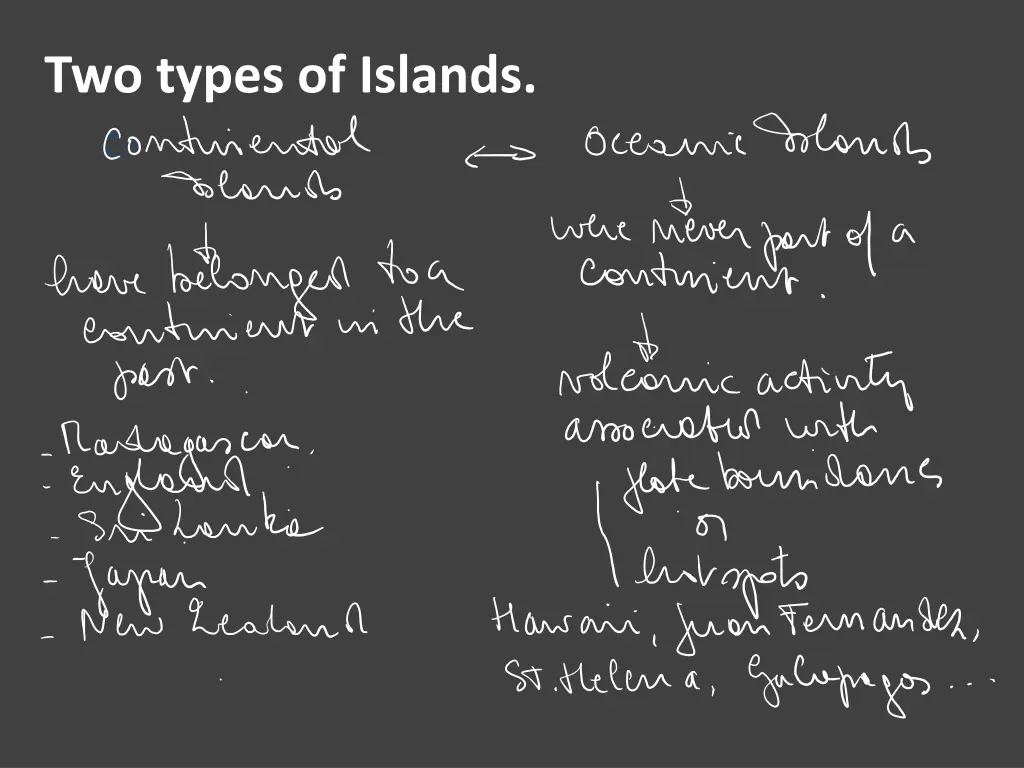 Two types of Islands.
Continental
Islands
↔
Oceanic Islands
↓
have belonged to a
continent in the
past.
- Madagascar.
- England
- Sri Lanka
- Japan
- New Zealand
↓
were never part of a
continent.
↓
volcanic activity
associated with
plate boundaries
or
hotspots
Hawaii, Juan Fernandez,
St. Helena, Galapagos ...